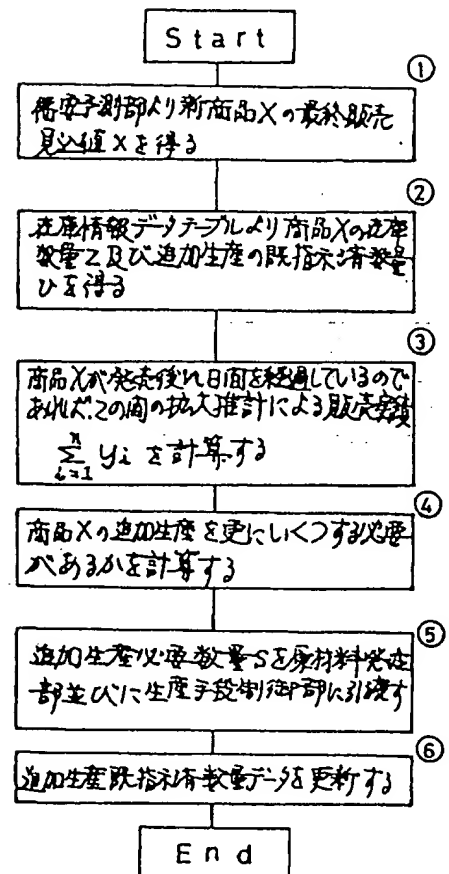 Start
①
需要予測部より新商品Xの最終販売
見込値xを得る
②
在庫情報データテーブルより商品Xの在庫
数量Z及び追加生産の既指示済数量
Uを得る
③
商品Xが発売後n日間を経過しているので
あれば、この間の拡大推計による販売実績
\sum_{i=1}^{n} yi を計算する
④
商品Xの追加生産を更にいくつする必要
があるかを計算する
⑤
追加生産必要数量Sを原材料発注
部並びに生産手段制御部に引渡す
⑥
追加生産既指示済数量データを更新する
End